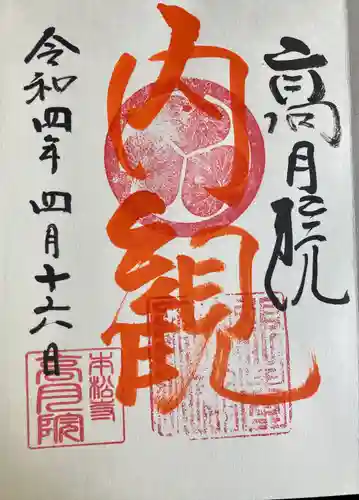 高月院
内観
令和四年四月十六日
高月院